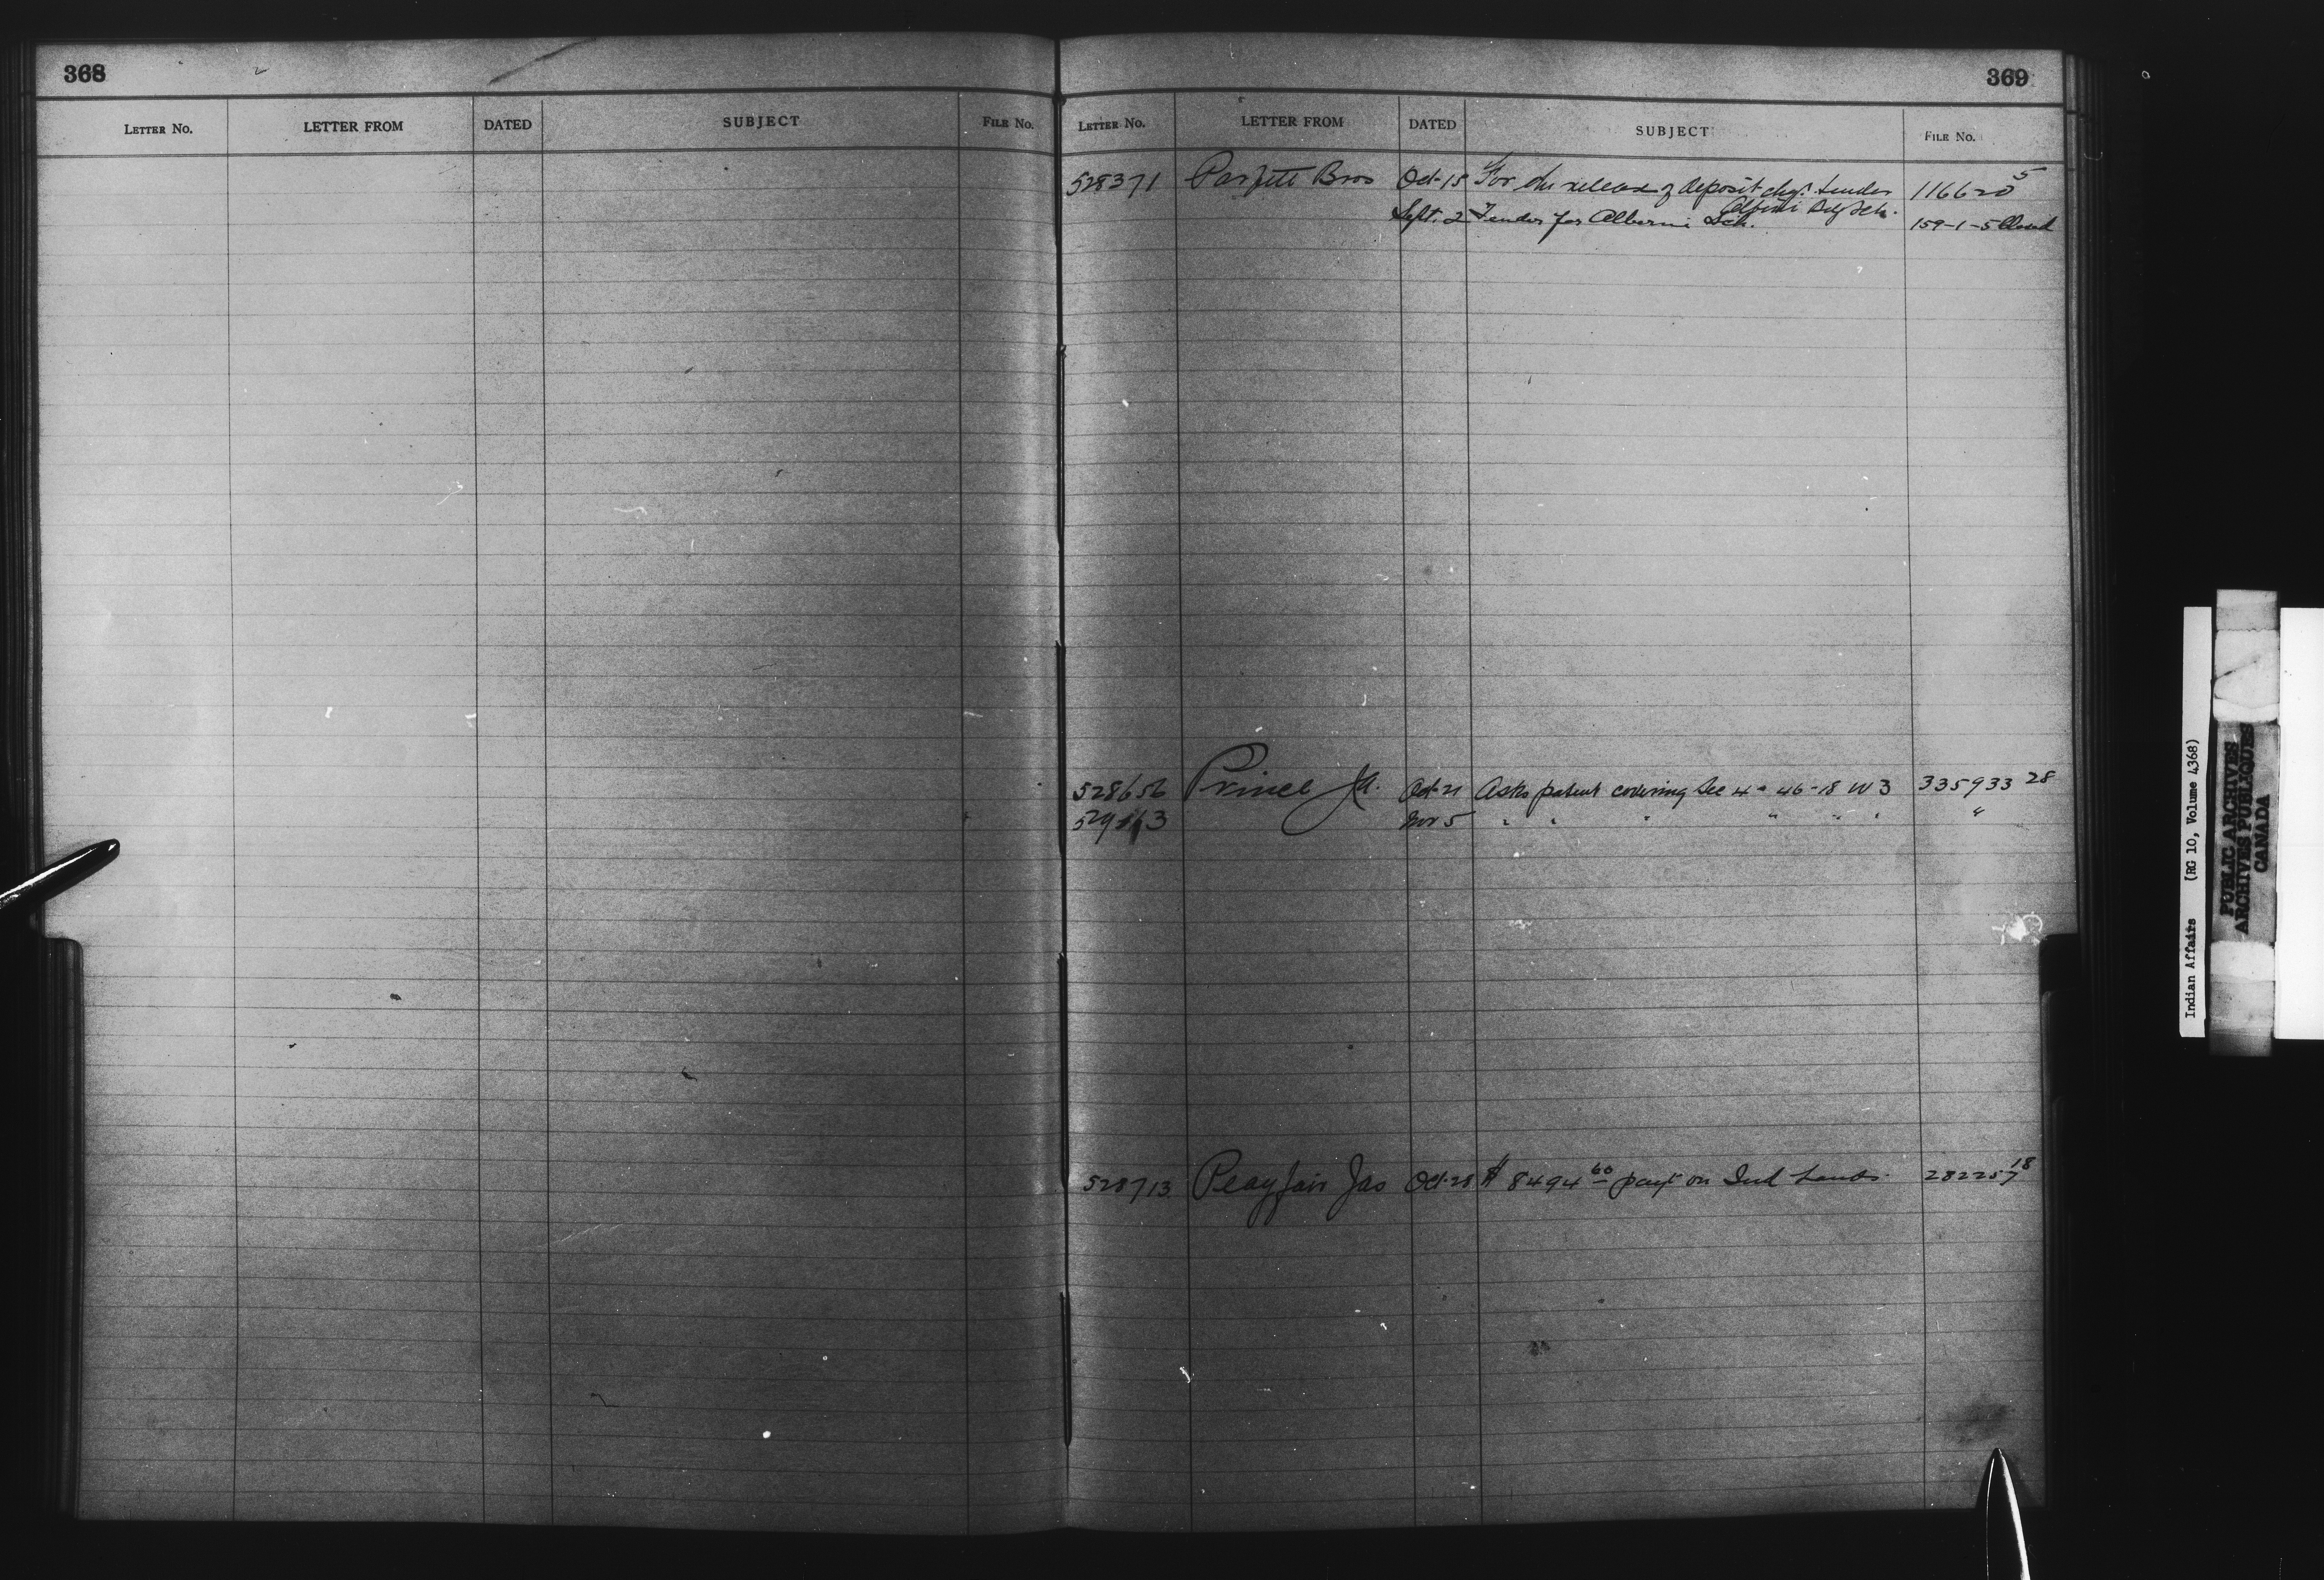 368
LETTER NO. LETTER FROM DATED SUBJECT FILE No.
369
LETTER NO. LETTER FROM DATED SUBJECT FILE No.
528371 Parfitt Bros Oct 15 For the release of deposit chq. tender 116620 5
Alberni Bdg Sch.
Sept. 2 Tender for Alberni Sch. 159-1-5 Closed
528656 Prince JA. Oct 21 Asks patent covering Sec 4 - 46 - 18 W 3 335933 28
Nov 5 " " " " " " "
528713 Peayfair Jas Oct 28 $ 8494 60 payt on Ind Lands. 282257 18
Indian Affairs (RG 10, Volume 4368)
PUBLIC ARCHIVES
ARCHIVES PUBLIQUES
CANADA